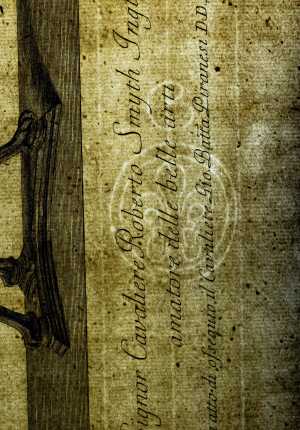 ignor Cavaliere Roberto Smyth Ingl
amatore delle belle arti
atto di ossequio il Cavaliere Gio Batta Piranesi D.D.